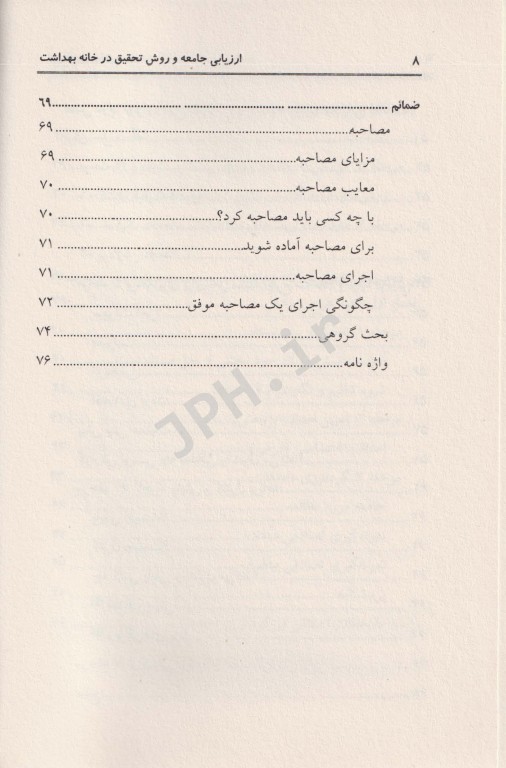 ۸ ارزیابی جامعه و روش تحقیق در خانه بهداشت
ضمائم ........................... ........................... ...........................۶۹
مصاحبه...........................۶۹
مزایای مصاحبه...........................۶۹
معایب مصاحبه...........................۷۰
با چه کسی باید مصاحبه کرد؟...........................۷۰
برای مصاحبه آماده شوید...........................۷۱
اجرای مصاحبه...........................۷۱
چگونگی اجرای یک مصاحبه موفق...........................۷۲
بحث گروهی...........................۷۴
واژه نامه...........................۷۶
JPH.ir